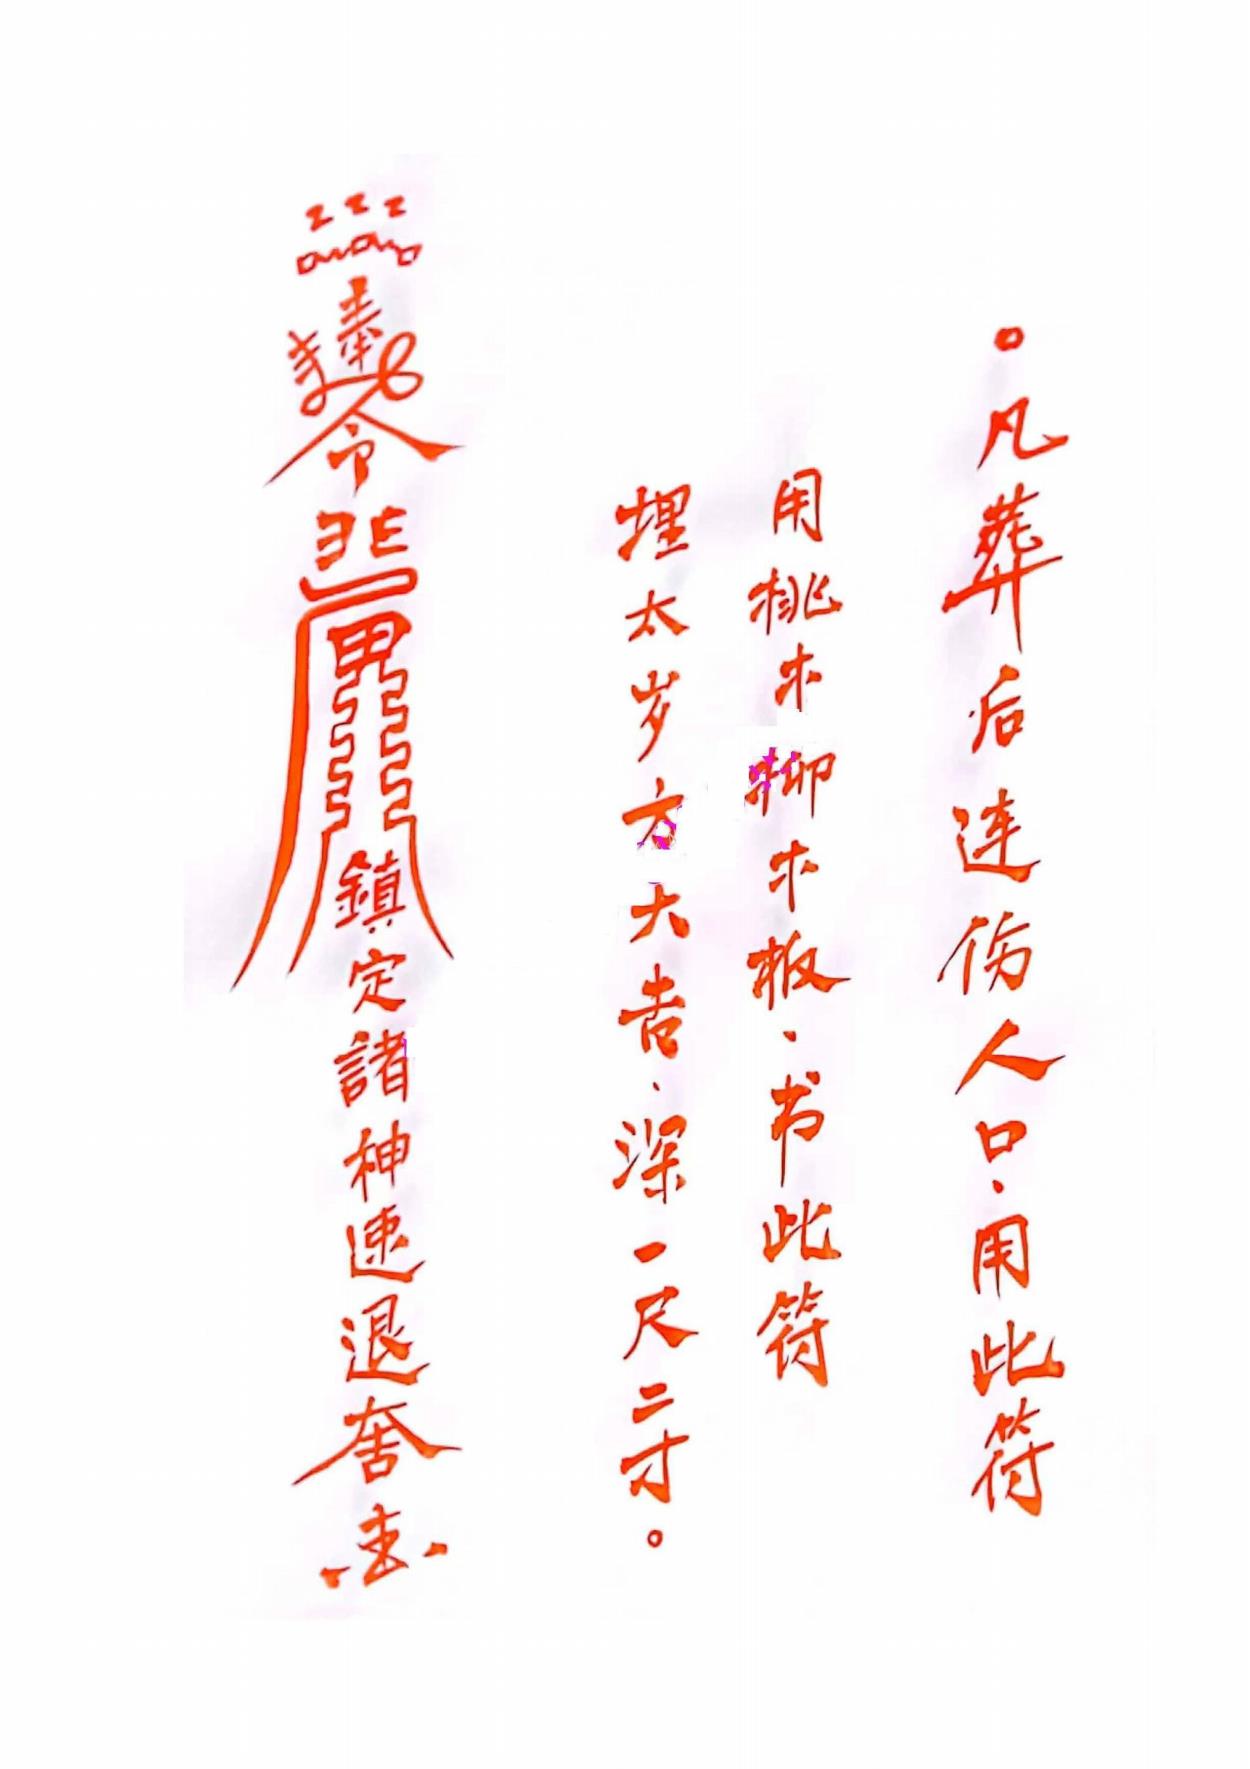 。凡葬后连伤人口.用此符
用桃木柳木板.书此符
埋太岁方大吉.深一尺二寸。
奉
令
鎮定諸神速退奢